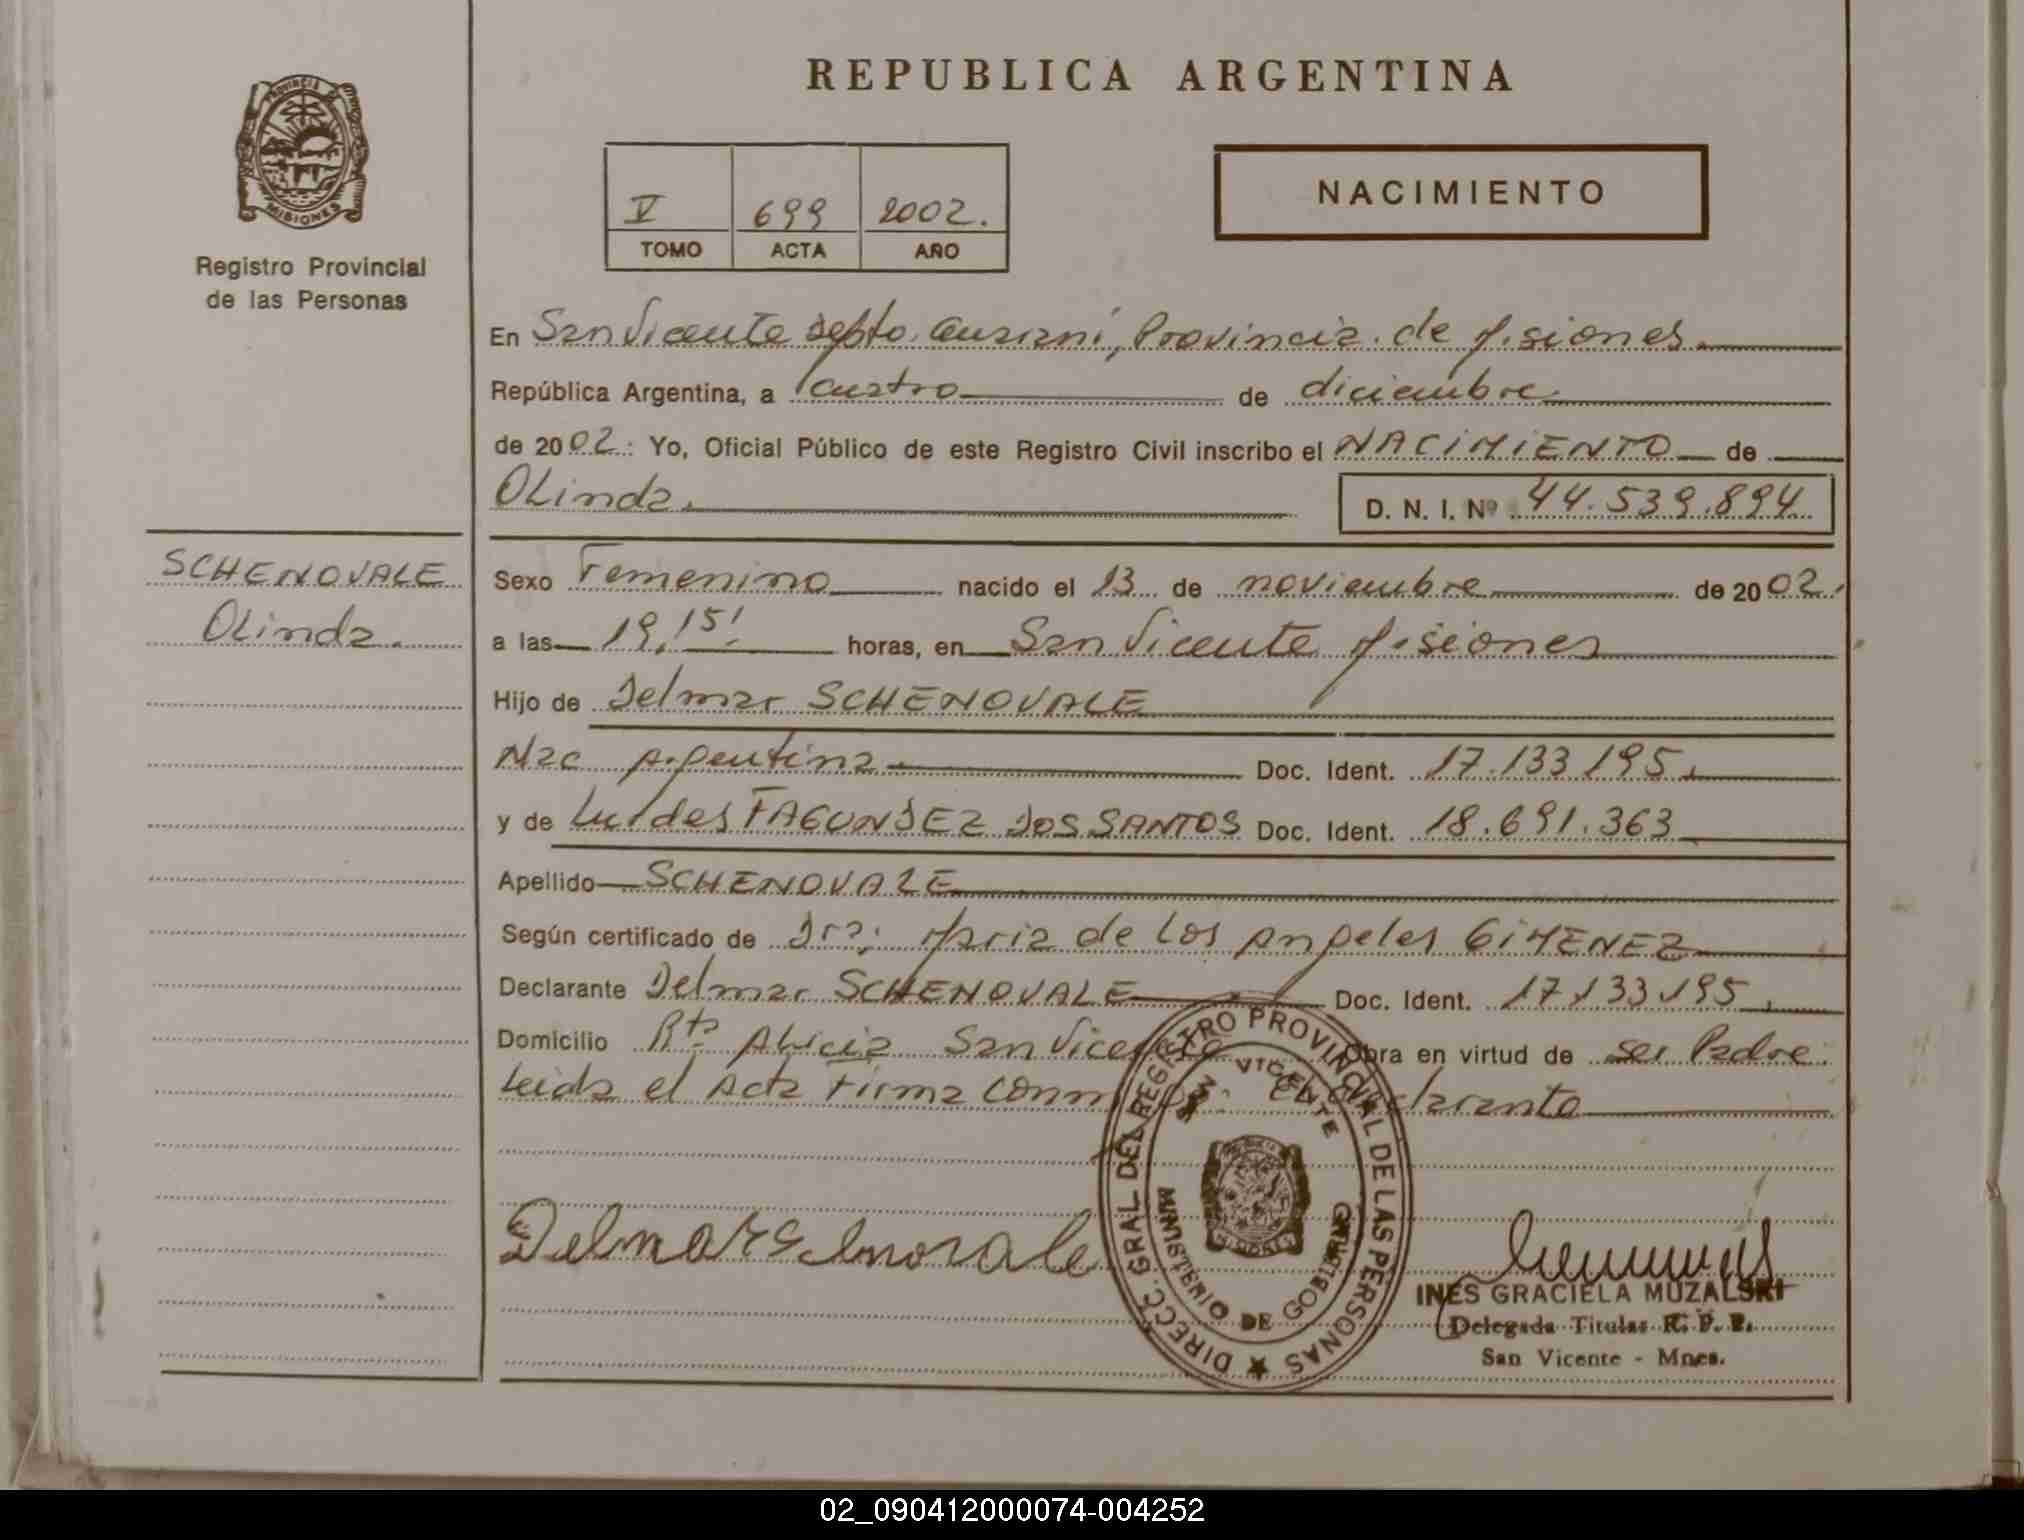 REPUBLICA ARGENTINA
PROVINCIA DE
MISIONES
Registro Provincial
de las Personas
V 699 2002.
TOMO ACTA AÑO
NACIMIENTO
En San Vicente Depto. Guaraní, Provincia de Misiones.
República Argentina, a cuatro de diciembre
de 2002: Yo, Oficial Público de este Registro Civil inscribo el NACIMIENTO de
OLinda.
D. N. I. Nº 44.539.894
SCHENOVALE
OLinda.
Sexo Femenino nacido el 13 de noviembre de 2002.
a las 19,15' horas, en San Vicente Misiones
Hijo de Delmar SCHENOVALE
Nac Argentina Doc. Ident. 17.133.195.
y de Lurdes FAGUNDEZ DOS SANTOS Doc. Ident. 18.691.363
Apellido SCHENOVALE
Según certificado de Dra: Maria de Los Angeles GIMENEZ
Declarante Delmar SCHENOVALE Doc. Ident. 17.133.195.
Domicilio Rta Alicia San Vicente Obra en virtud de ser Padre.
Leida el Acta Firma conmigo: el declarante
DIRECC. GRAL DEL REGISTRO PROVINCIAL DE LAS PERSONAS
SAN VICENTE
MINISTERIO DE GOBIERNO
Delmar Schnovale
INES GRACIELA MUZALSKI
Delegada Titular R. P. P.
San Vicente - Mnes.
02_090412000074-004252